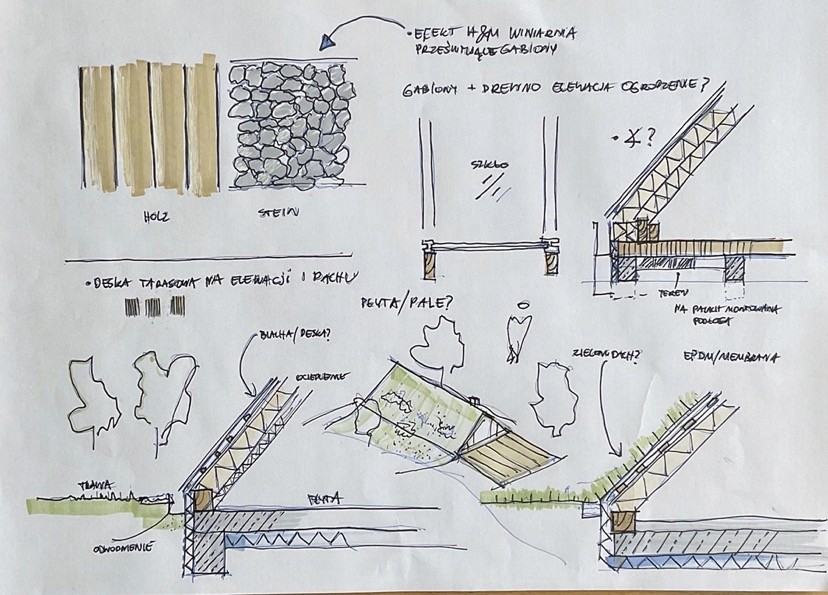 • EFEKT H&M WINIARNIA
PRZEŚWITUJĄCE GABIONY
GABIONY + DREWNO ELEWACJA OGRODZENIE?
SZKŁO
• ∢?
HOLZ
STEIN
TEREN
NA PALACH MONTOWANA
PODŁOGA
• DESKA TARASOWA NA ELEWACJI I DACHU
PŁYTA/PALE?
BLACHA/DESKA?
OCIEPLENIE
ZIELONY DACH?
EPDM/MEMBRANA
TRAWA
PŁYTA
ODWODNIENIE